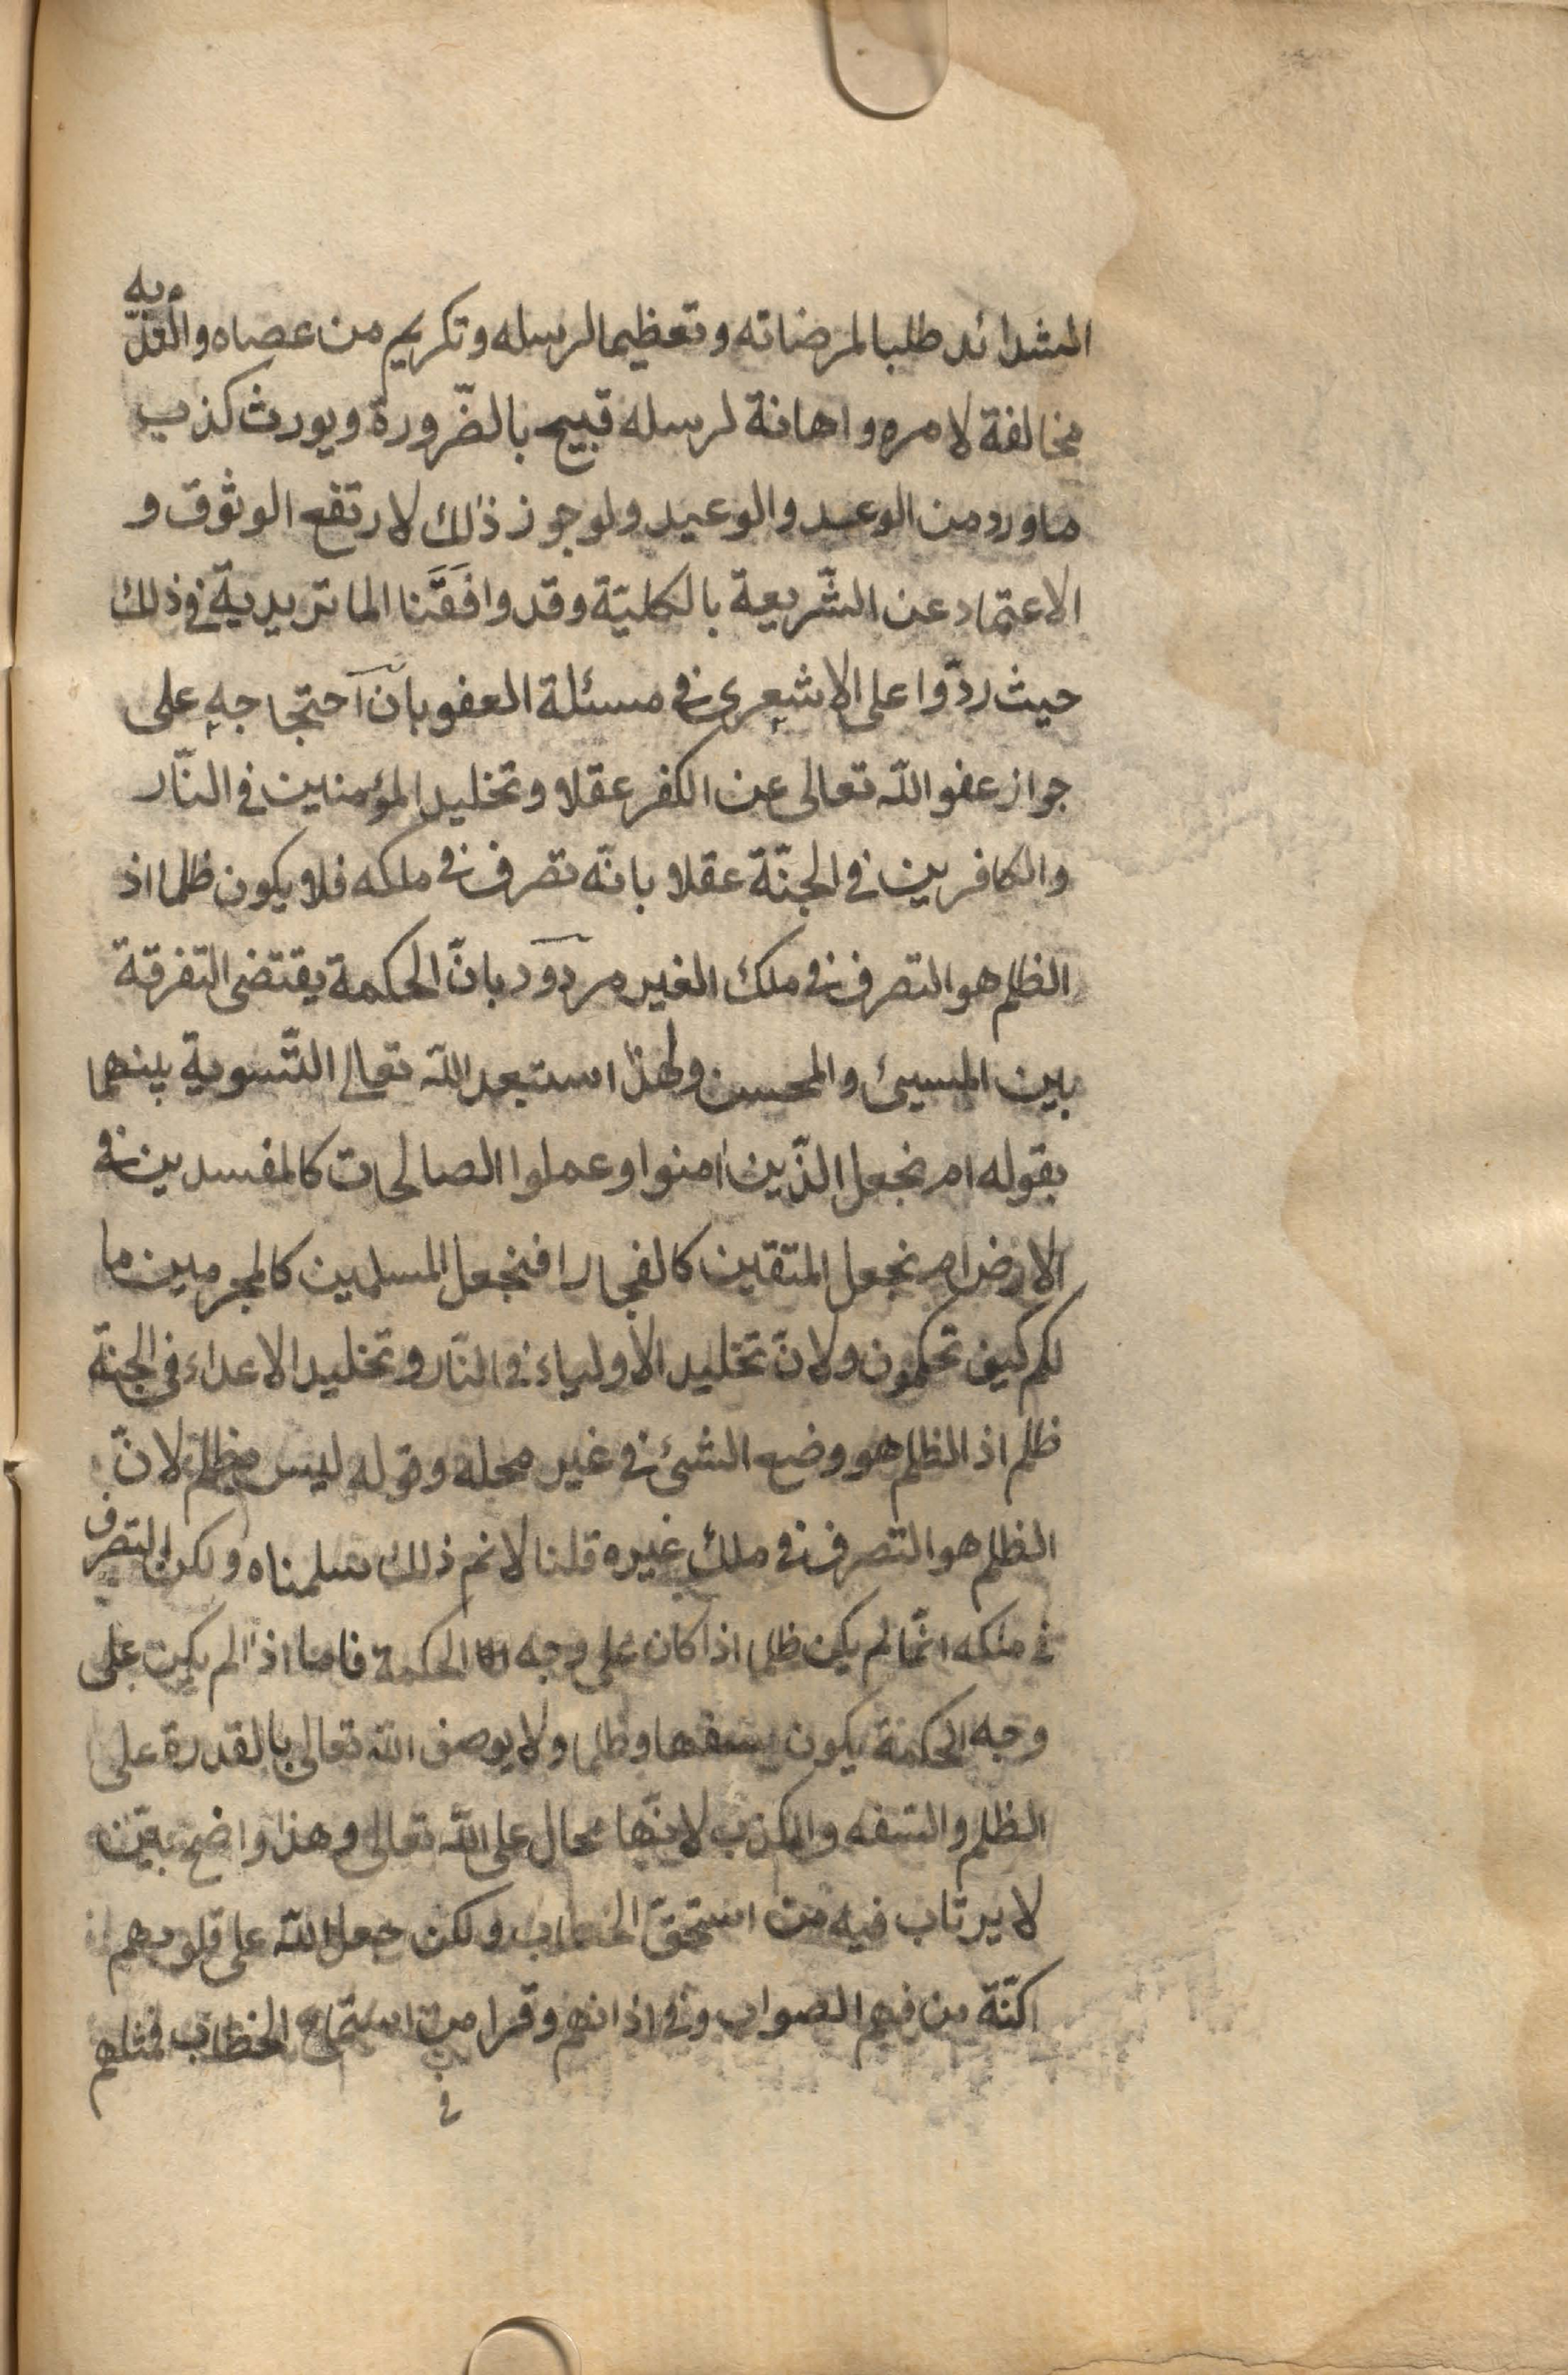 الشدائد طلبا لمرضاته وتعظيما لرسله وتكريم من عصاه و به
مخالفة لامره واهانة لرسله قبيح بالضّرورة ويورث كذب
ما ورد من الوعد والوعيد ولو جوز ذلك لارتفع الوثوق و
الاعتماد عن الشّريعة بالكليّة وقد وافَقَنا الماتريدية فى ذلك
حيث ردّوا على الاشعرى فى مسئلة العفو بانّ احتجاجه على
جواز عفو الله تعالى عن الكفر عقلا وتخليد المؤمنين فى النّار
والكافرين فى الجنّة عقلا بانّه تصرف فى ملكه فلا يكون ظلما اذ
الظلم هو التصرف فى ملك الغير مردود بانّ الحكمة يقتضى التفرقة
بين المسيئ والمحسن ولهذا استبعد الله تعالى التّسوية بينهما
بقوله ام نجعل الذّين امنوا وعملوا الصالحات كالمفسدين فى
الارض ام نجعل المتقين كالفجار افنجعل المسلمين كالمجرمين ما
لكم كيف تحكمون ولانّ تخليد الأولياء فى النّار وتخليد الاعداء فى الجنّة
ظلم اذ الظلم هو وضع الشئ فى غير محله وقوله ليس بظلم لانّ
الظلم هو التصرف فى ملك غيره قلنا لانم ذلك سلمناه ولكن التصرف
فى ملكه انّما لم يكن ظلما اذا كان على وجه الحكمة فاما اذا لم يكن على
وجه الحكمة يكون سفها وظلما ولا يوصف الله تعالى بالقدرة على
الظلم والسّفه والكذب لانّها محال على الله تعالى وهذا واضح بيّن
لا يرتاب فيه من استحقّ الخطاب ولكن جعل الله على قلوبهم
اكنّة من فهم الصواب وفى اذانهم وقرا من استماع الخطاب فمثلهم
فى